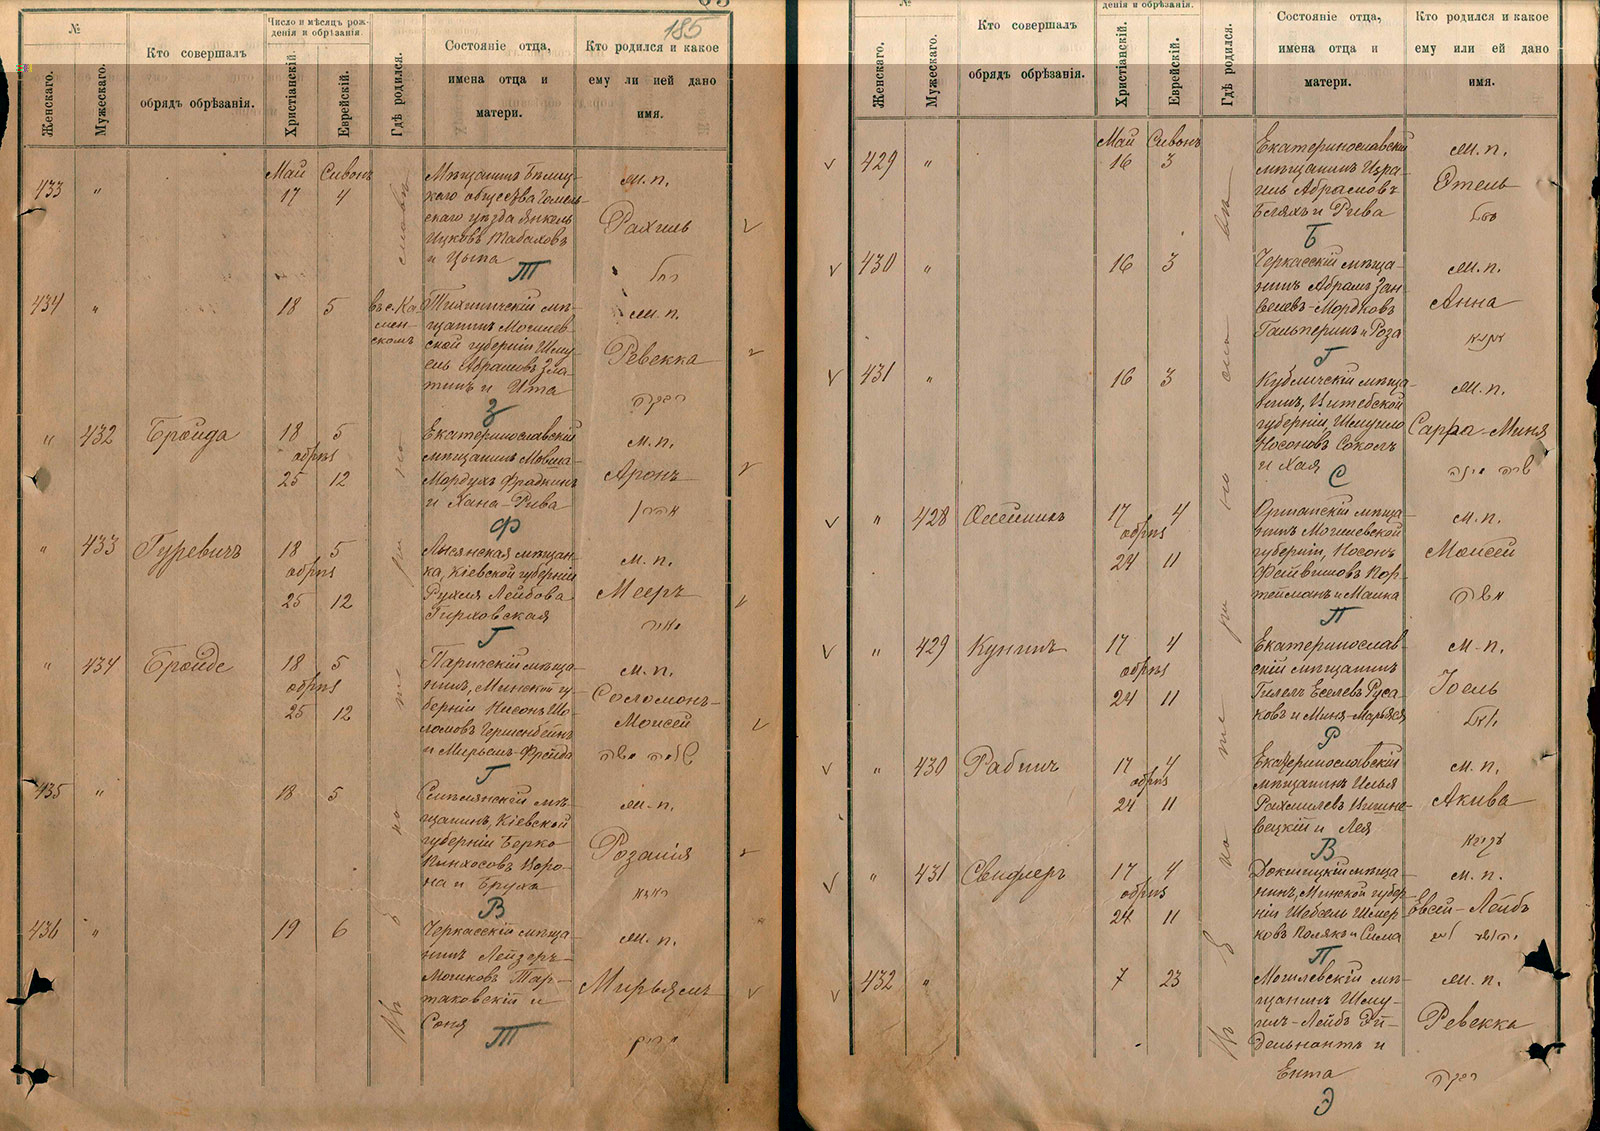 185
№
Женскаго.
Мужескаго.
Кто совершалъ
обрядъ обрѣзанія.
Число и мѣсяцъ рож-
денія и обрѣзанія.
Христіанскій.
Еврейскій.
Гдѣ родился.
Состояніе отца,
имена отца и
матери.
Кто родился и какое
ему ли ией дано
имя.
433 "
Май Сивонъ
17 4
Мѣщанинъ Бѣлиц-
каго общества Гомель-
скаго уѣзда Янкель
Ицковъ Табаховъ
и Цыпа
Т
ж. п.
Рахиль
רחל
434 "
18 5
въ с. Ка
мен-
скомъ
щанинъ Могилев-
ской губерніи Шму-
ель Абрамовъ Зла-
тинъ и Ита
З
ж. п.
Ревекка
רבקה
" 432 Бройда
18 5
обрѣз
25 12
Екатеринославскій
мѣщанинъ Мовша-
Мордухъ Фрадкинъ
и Хана-Рива
Ф
м. п.
Аронъ
אהרן
" 433 Гуревичъ
18 5
обрѣз
25 12
Лысянская мѣщан-
ка, Кіевской губерніи
Рухля Лейбова
Гирховская
Г
м. п.
Мееръ
מאיר
" 434 Бройде
18 5
обрѣз
25 12
Паричскій мѣща-
нинъ, Минской гу-
берніи Нисонъ Шо-
ломовъ
и Мирьямъ-Фрейда
Г
м. п.
Соломонъ-
Моисей
שלמה משה
435 "
18 5
щанинъ, Кіевской
губерніи Берко
Пинхосовъ Воро-
на и Бруха
В
ж. п.
Розалія
436 "
19 6
Черкасскій мѣща-
нинъ Лейзеръ-
Мошковъ Тар-
таковскій и
Соня
Т
ж. п.
Мирьямъ
מרים
Въ Екатеринославѣ
№
Женскаго.
Мужескаго.
Кто совершалъ
обрядъ обрѣзанія.
денія и обрѣзанія.
Христіанскій.
Еврейскій.
Гдѣ родился.
Состояніе отца,
имена отца и
матери.
Кто родился и какое
ему или ей дано
имя.
429 "
Май Сивонъ
16 3
Екатеринославскій
мѣщанинъ Изра-
иль Абрамовъ
и Рива
Б
ж. п.
Этель
430 "
16 3
Черкасскій мѣща-
нинъ Абрамъ Зан-
велевъ-Мордковъ
Гальперинъ и Роза
Г
ж. п.
Анна
431 "
16 3
Кубличскій мѣща-
нинъ, Витебской
губерніи Шмуйло
Носоновъ Соколъ
и Хая
С
ж. п.
Сарра-Миня
שרה מינה
" 428 Олейникъ
17 4
обрѣз
24 11
Оршанскій мѣща-
нинъ Могилевской
губерніи, Носонъ
Файвишовъ Пор-
тейманъ и Маика
П
м. п.
Моисей
משה
" 429 Кунинъ
17 4
обрѣз
24 11
Екатеринослав-
скій мѣщанинъ
Гилелъ Еселевъ Руса-
ковъ и Миня-Марьяся
Р
м. п.
Іоель
יואל
" 430 Рабинъ
17 4
обрѣз
24 11
Екатеринославскій
мѣщанинъ Илья
Рахмилевъ Вишне-
вецкій и Лея
В
м. п.
Акива
עקיבא
" 431 Свифлеръ
17 4
обрѣз
24 11
Докшицкій мѣща-
нинъ, Минской губер-
ніи Шебсель Шмер
ковъ Полякъ и Сима
П
м. п.
Евсей-Лейбъ
432 "
7 23
Могилевскій мѣ-
щанинъ Шму-
илъ-Лейбъ Эй-
дельнантъ и
Ента
Э
ж. п.
Ревекка
רבקה
Въ Екатеринославѣ